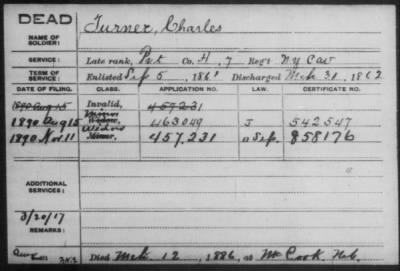 DEAD
Turner, Charles
NAME OF SOLDIER:
SERVICE: Late rank, Pvt Co. H, 7 Reg't N.Y. Cav
TERM OF SERVICE: Enlisted Sep 5, 1861 Discharged Mch 31, 1862
DATE OF FILING. CLASS. APPLICATION NO. LAW. CERTIFICATE NO.
1890 Aug 15 Invalid, 457231
1890 Aug 15 Widow, 463049 J 542547
1890 Nov. 11 Minor, 457,231 " Sep. 858176
ADDITIONAL SERVICES:
3/20/17
REMARKS:
Died Mch 12, 1886, at McCook, Neb.